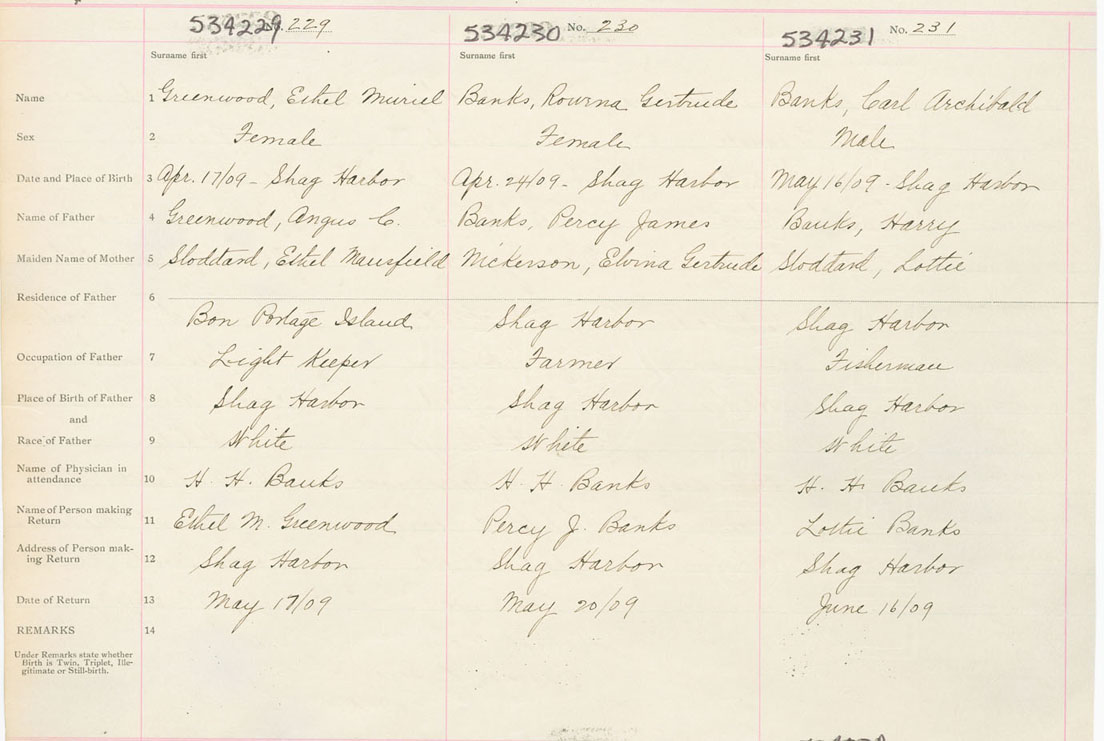 534229 No. 229 534230 No. 230 534231 No. 231
Surname first Surname first Surname first
Name 1 Greenwood, Ethel Muriel Banks, Rowena Gertrude Banks, Carl Archibald
Sex 2 Female Female Male
Date and Place of Birth 3 Apr. 17/09 - Shag Harbor Apr. 24/09 - Shag Harbor May 16/09 - Shag Harbor
Name of Father 4 Greenwood, Angus C. Banks, Percy James Banks, Harry
Maiden Name of Mother 5 Stoddard, Ethel Mansfield Nickerson, Elvina Gertrude Stoddard, Lottie
Residence of Father 6
Bon Portage Island Shag Harbor Shag Harbor
Occupation of Father 7 Light Keeper Farmer Fisherman
Place of Birth of Father 8 Shag Harbor Shag Harbor Shag Harbor
and
Race of Father 9 White White White
Name of Physician in
attendance 10 H. H. Banks H. H. Banks H. H. Banks
Name of Person making
Return 11 Ethel M. Greenwood Percy J. Banks Lottie Banks
Address of Person mak-
ing Return 12 Shag Harbor Shag Harbor Shag Harbor
Date of Return 13 May 17/09 May 20/09 June 16/09
REMARKS 14
Under Remarks state whether
Birth is Twin, Triplet, Ille-
gitimate or Still-birth.